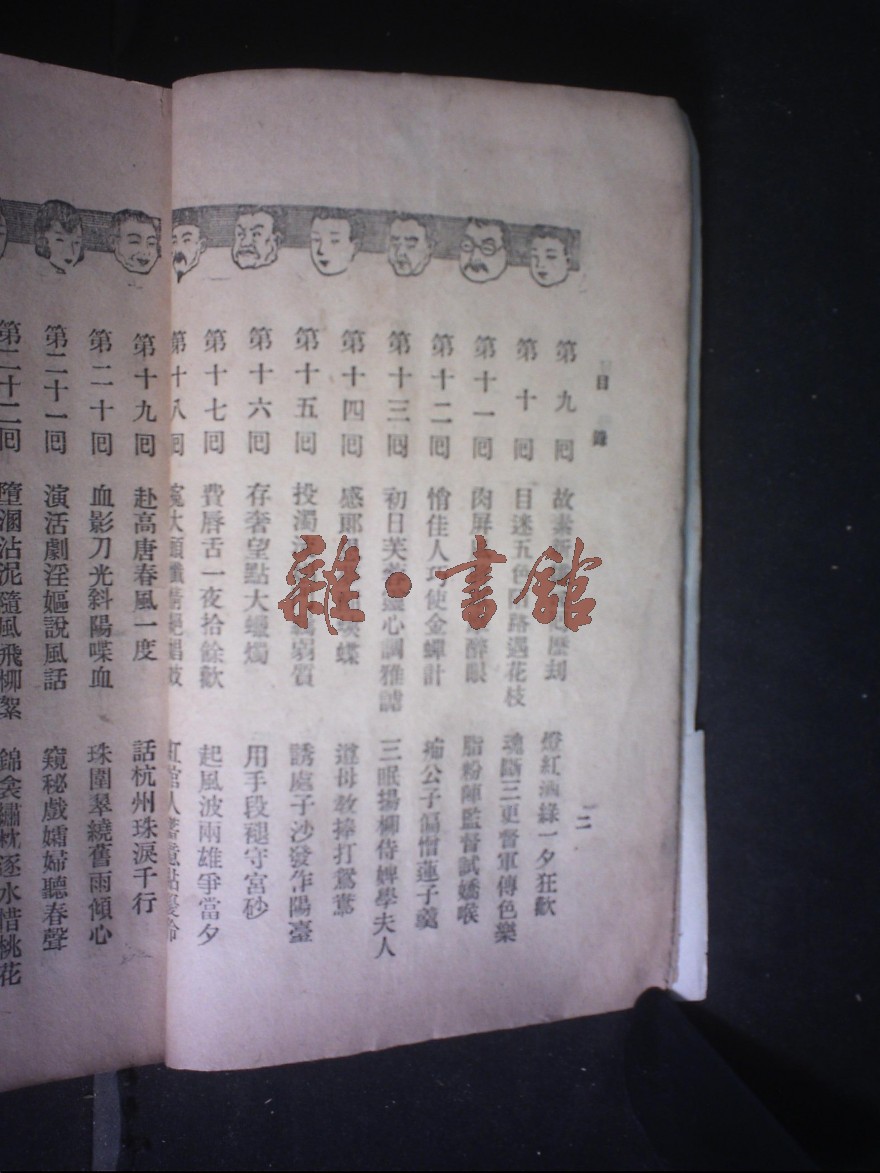 目錄
二
第九回 故 歷劫 燈紅酒綠一夕狂歡
第十回 目迷五色 路遇花枝 魂斷三更督軍傳色樂
第十一回 肉屏 醉眼 脂粉陣監督試嬌喉
第十二回 惜佳人巧使金蟬計 痴公子 蓮子羹
第十三回 初日芙蓉 心調雅謔 三眠楊柳侍婢學夫人
第十四回 感 蝶 遵母教捧打鴛鴦
第十五回 投濁 弱質 誘處子沙發作陽臺
第十六回 存奢望點大蠟燭 用手段褪守宮砂
第十七回 費唇舌一夜拾餘歡 起風波兩雄爭當夕
第十八回 冤大頭
第十九回 赴高唐春風一度 話杭州珠淚千行
第二十回 血影刀光斜陽喋血 珠圍翠繞舊雨傾心
第二十一回 演活劇淫嫗說風話 窺秘戲孀婦聽春聲
第二十二回 墮溷沾泥隨風飛柳絮 錦衾繡枕逐水惜桃花
雜·書館